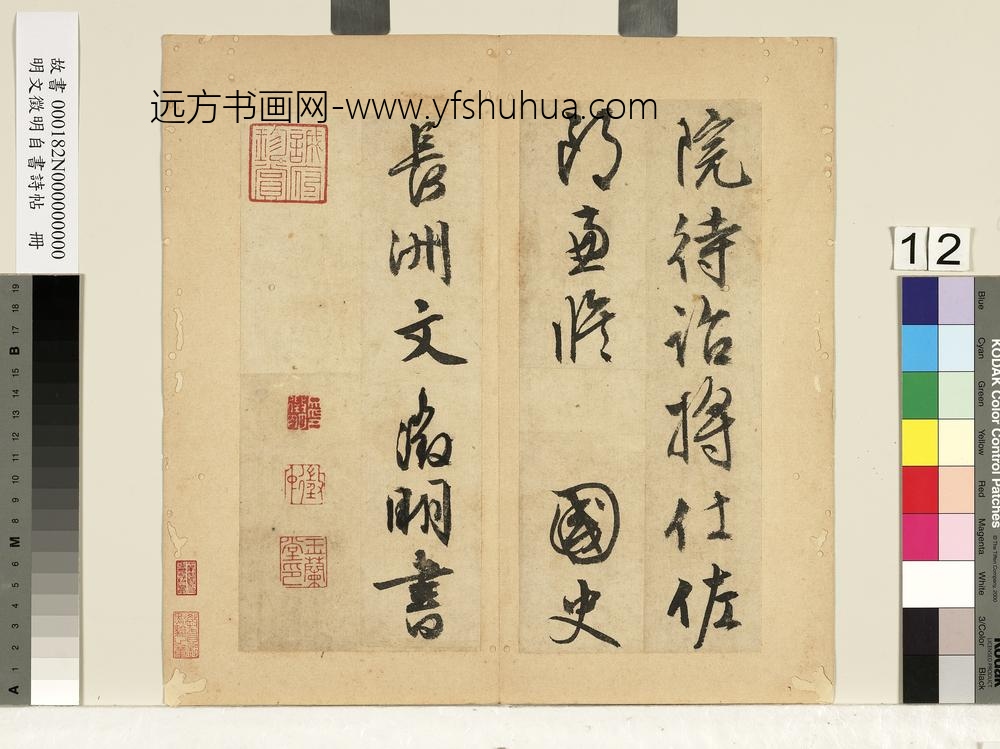 远方书画网-www.yfshuhua.com
院待诏将仕佐
郎兼脩 國史
長洲文徵明書
故書 000182N000000000
明文徵明自書詩帖 冊
12
KODAK Color Control Patches
© The Tiffen Company, 2000
Kodak
LICENSED PRODUCT
Blue
Cyan
Green
Yellow
Red
Magenta
White
3/Color
Black
A 1 2 3 4 5 6 M 8 9 10 11 12 13 14 15 B 17 18 19
玉蘭堂印